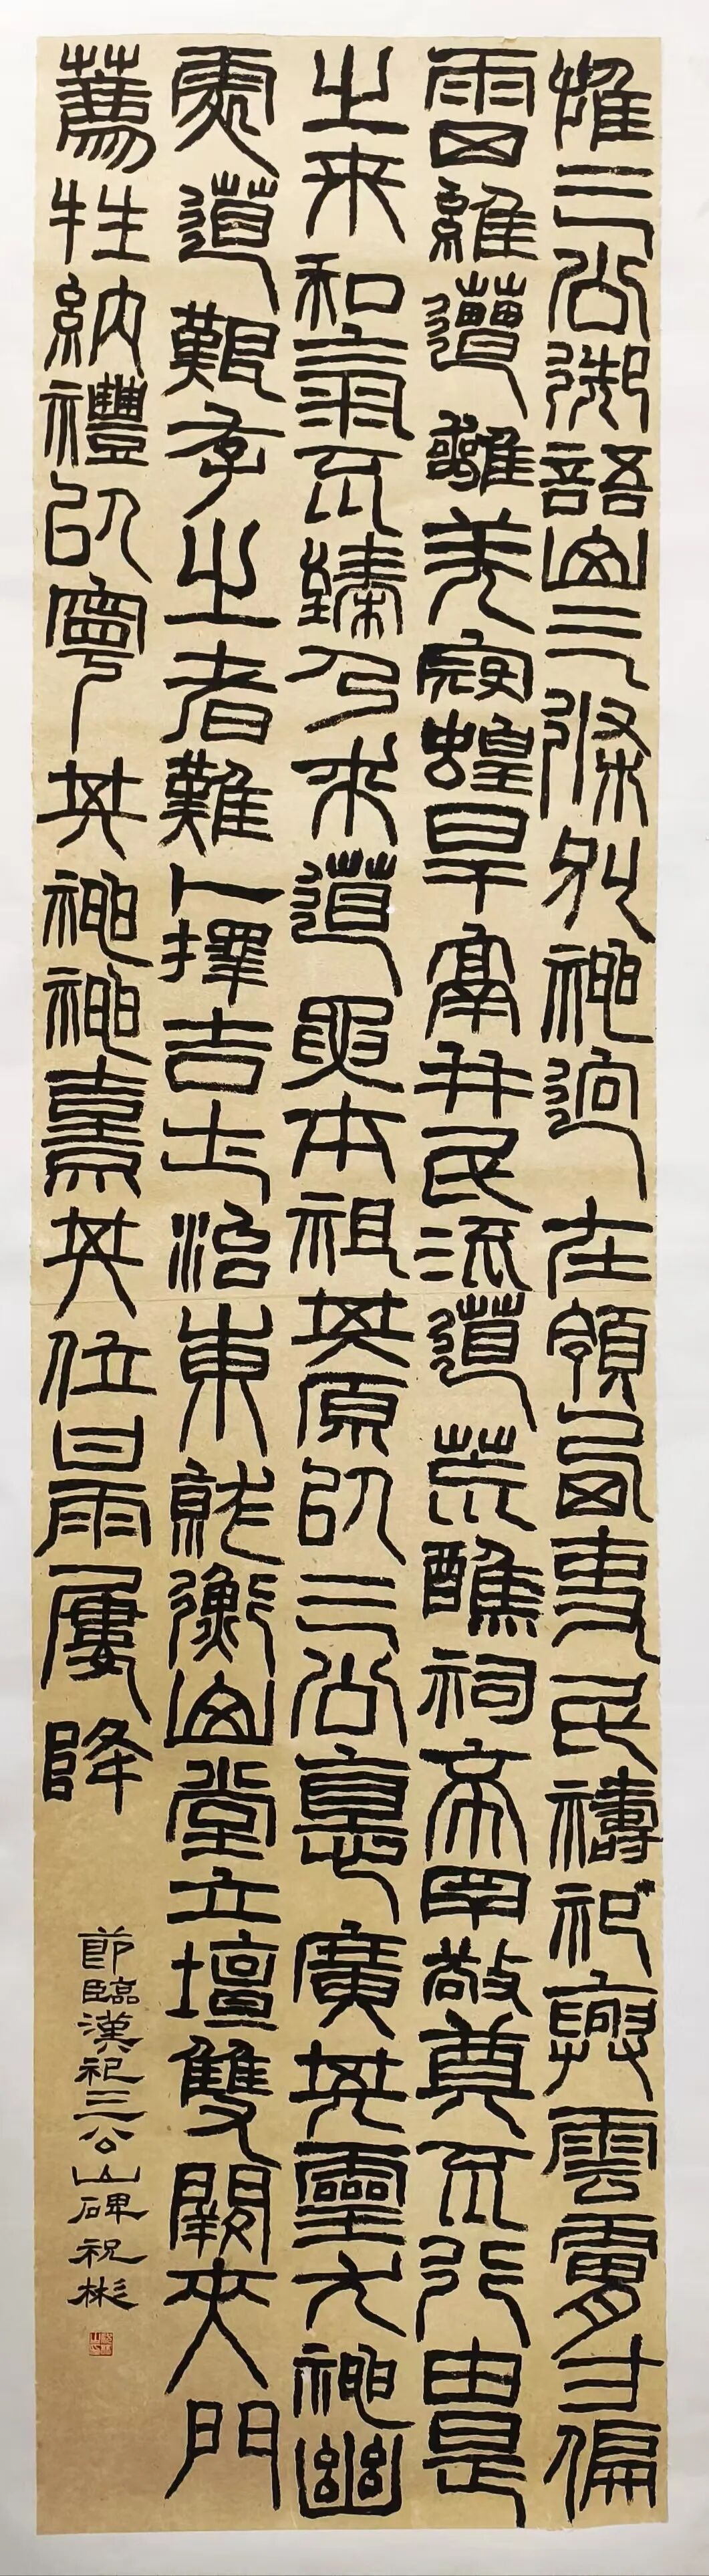 惟三公御語山三條別神迥在領西吏民禱祀興雲膚寸偏
雨四維遭離羌寇蝗旱鬲并民流道荒醮祠希罕敬奠不行由是
之來和氣不臻乃來道要本祖其原以三公德廣其靈尤神幽
處道艱存之者難卜擇吉土治東就衡山堂立壇雙闕夾門
薦牲納禮以寧其神神熹其位甘雨屢降
節臨漢祀三公山碑祝彬